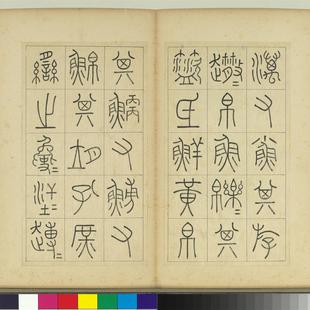 澫又小魚其斿
䞣＝帛魚皪＝其
氐鮮黃帛
其鯾又鱄又
鮊其胡孔庶
臠之毚＝汗＝趍＝